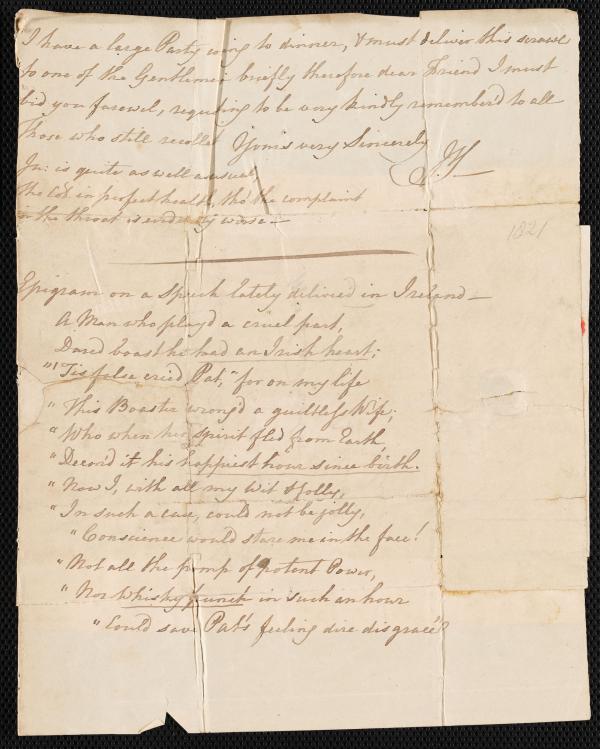 I have a large Party coming to dinner, & must deliver this scrawl
to one of the Gentlemen briefly therefore dear Friend I must
bid you farewel, requesting to be very kindly remember'd to all
Those who still recollect Yours very Sincerely
J.
Jn: is quite as well as usual,
The Col. in perfect health, tho' the complaint
in the throat is evidently worse —
1821
Epigram on a Speech lately deliver'd in Ireland —
A Man who play'd a cruel part,
Dared boast he had an Irish heart;
"'Tis false cried Pat," for on my life
"This Boaster wrong'd a guiltless Wife;
"Who when her spirit fled from Earth,
"Decor'd it his happiest hour since birth.
"Now I, with all my Wit & folly,
"In such a case, could not be jolly,
"Conscience would stare me in the face!
"Not all the pomp of potent Power,
"Nor Whisky punch in such an hour
"Could save Pat's feeling dire disgrace"